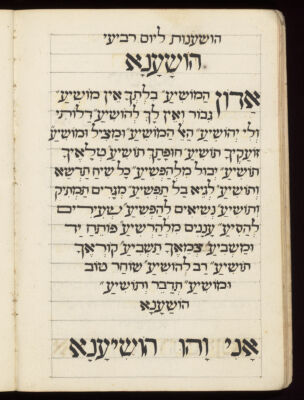 הושענות ליום רביעי
הושַענָא
אָדון הַמושיעַ בִלְתְךָ אֵין מושיעַ
גִבור וְאֵין לְךָ לְהושיעַ דַלותי
וְלי יְהושיעַ הָאֵל הַמושיעַ וּמַציל וּמושיעַ
זועֲקֶיךָ תושיעַ חופֶתְךָ תושיעַ טְלָאֶיךָ
תושיעַ יְבול מְלְהַפְשיעַ כָל שיחַ תַדְשֵא
וְתושיעַ לְגֵיא בַל תַפְשיעַ מְגָדים תַמְתיק
וְתושיעַ נְשיאים לְהַפְשיעַ שְעירים
לְהַסיעַ עֲנָנים מִלְהַרְשיעַ פותֵחַ יָד
וּמַשְביעַ צְמֵאֶיךָ תַשְביעַ קורְאֶיךָ
תושיעַ רַב לְהושיעַ שוחֵר טוב
וּמושיעַ תְדַבֵר וְתושיעַ
הושַענָא
אָני וָהו הושיעָנָא